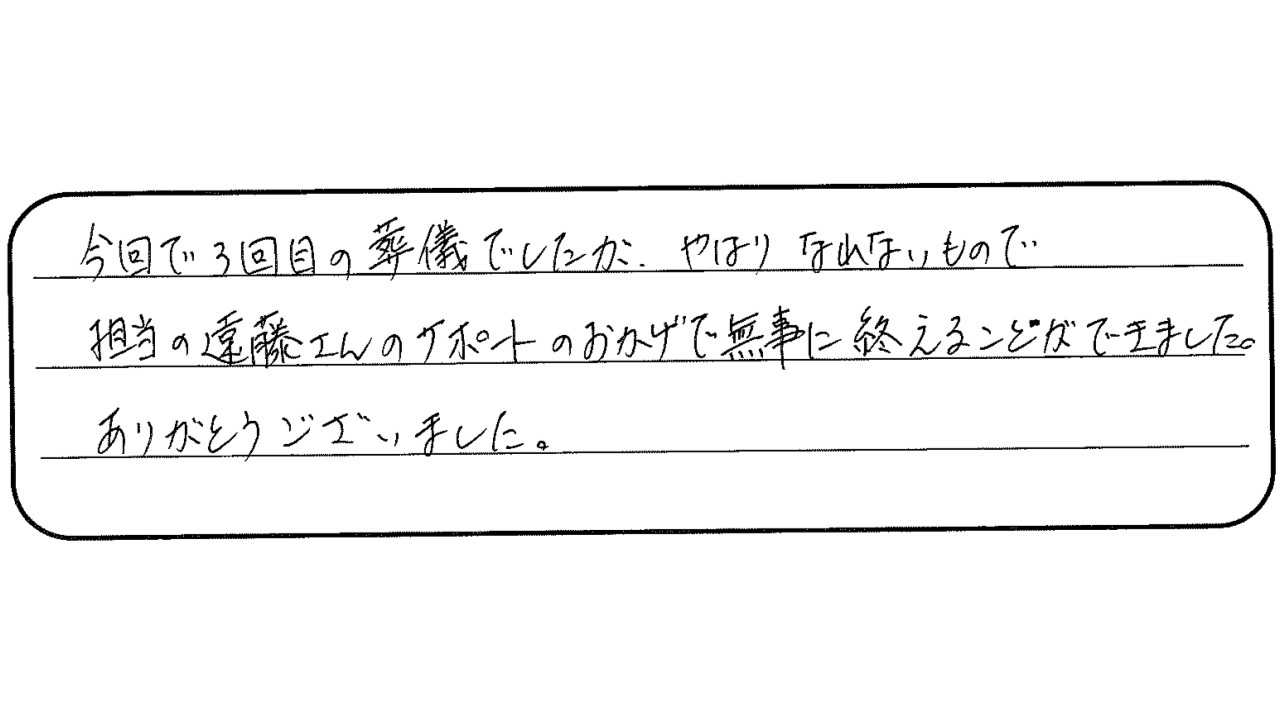 今回で3回目の葬儀でしたが、やはりなれないもので
担当の遠藤さんのサポートのおかげで無事に終えることができました。
ありがとうございました。